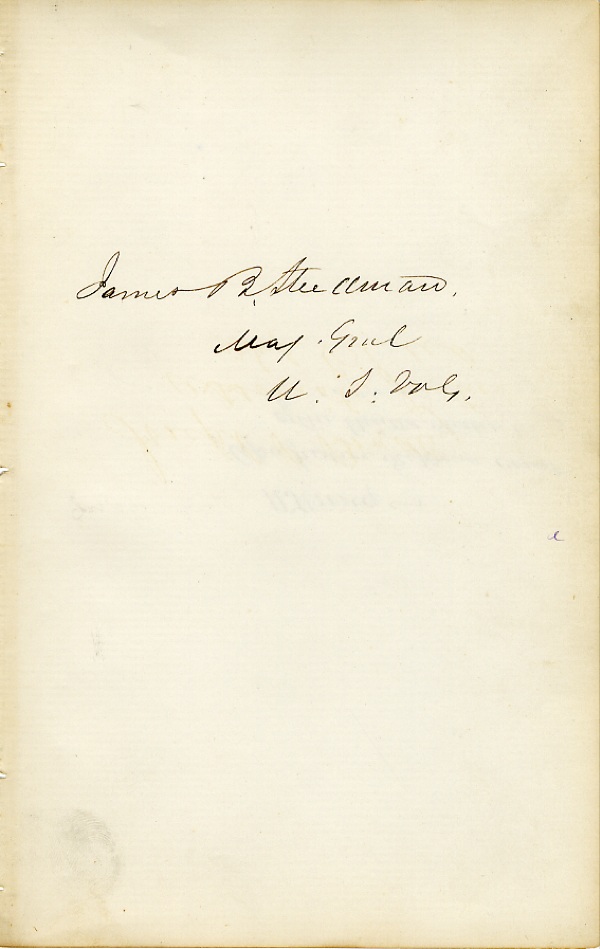 James B. Steedman.
Maj. Genl
U. S. Vols.